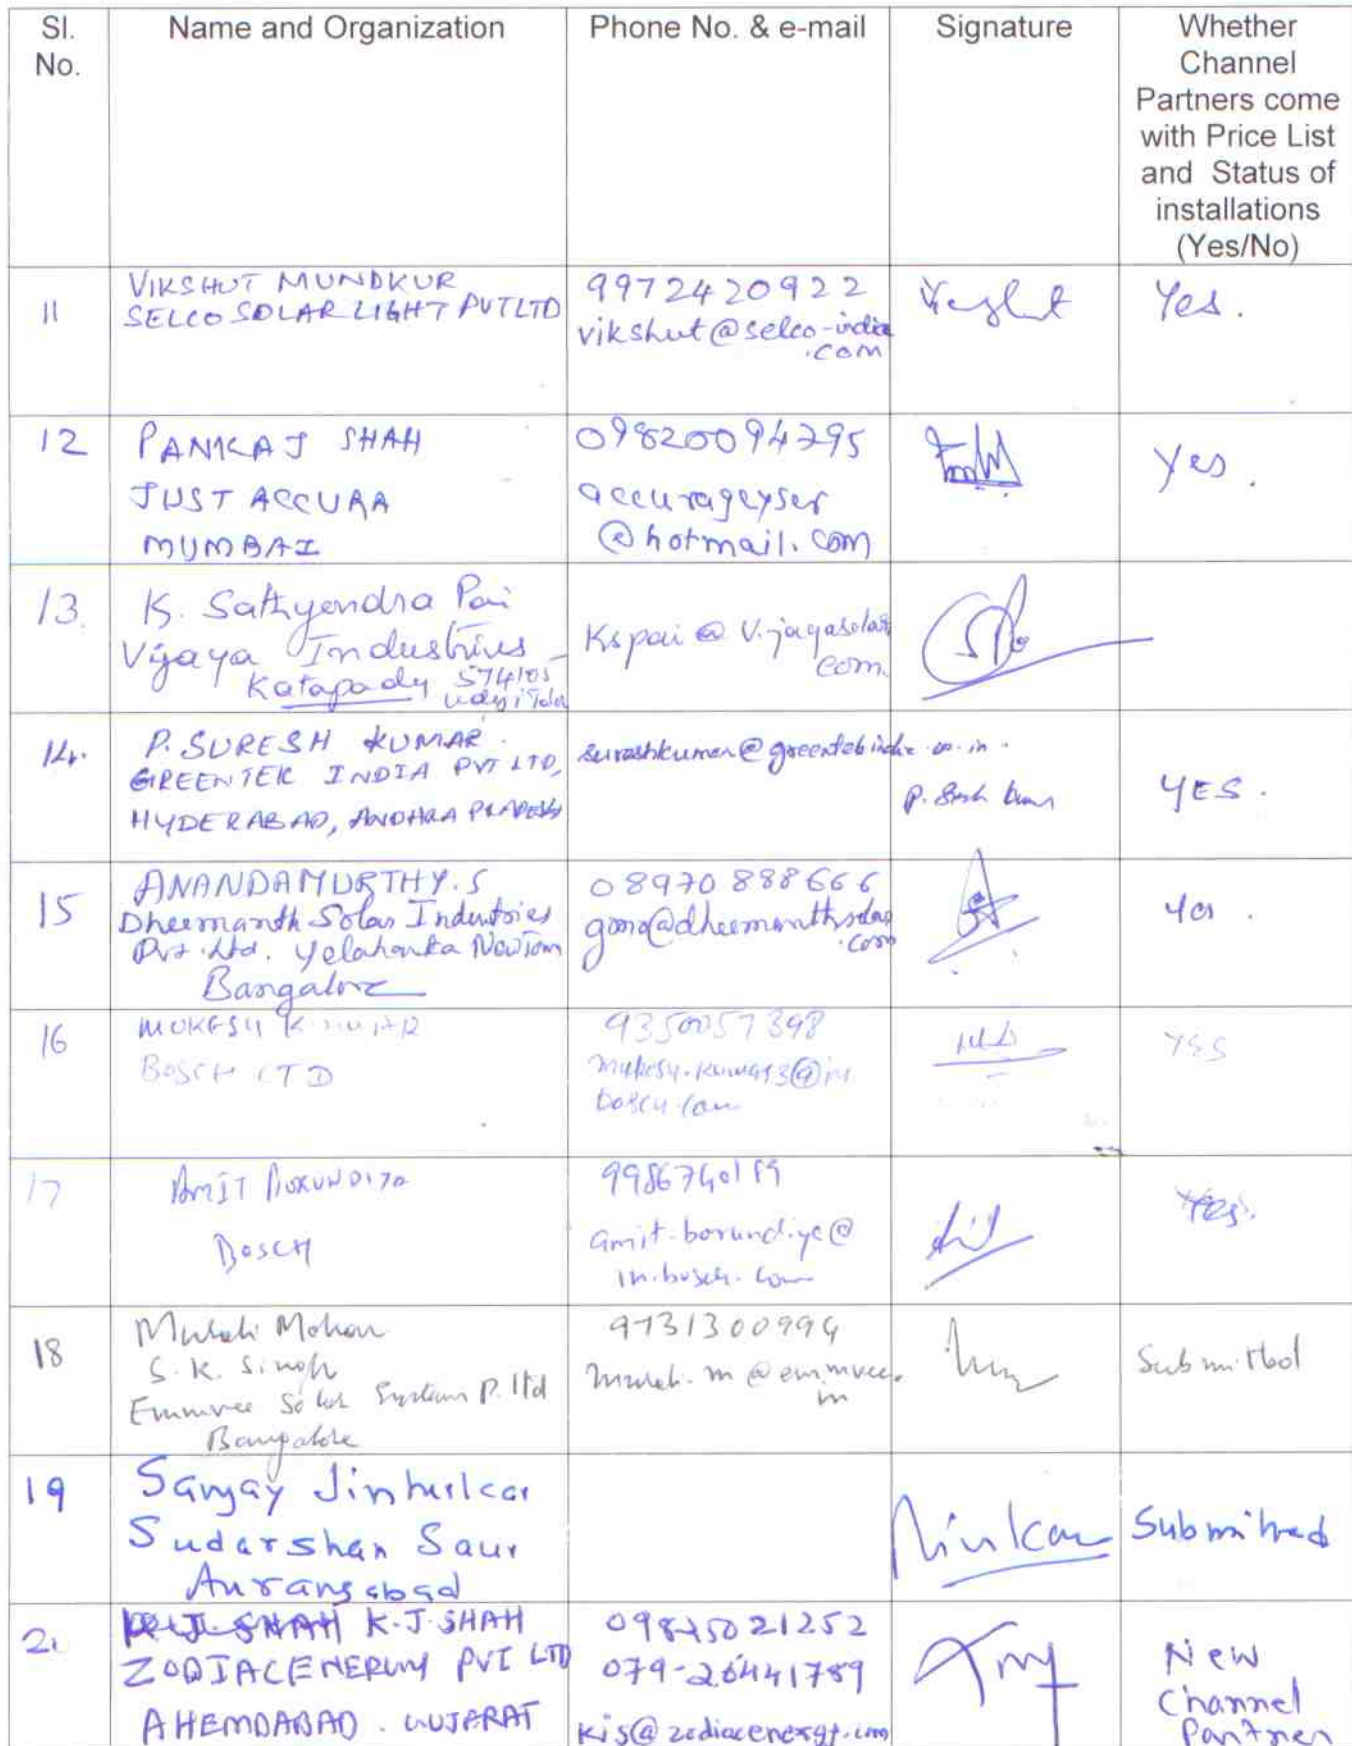 Sl.
No.
Name and Organization
Phone No. & e-mail
Signature
Whether
Channel
Partners come
with Price List
and Status of
installations
(Yes/No)
11
VIKSHUT MUNDKUR
SELCO SOLAR LIGHT PVT LTD
9972420922
vikshut@selco-india
.com
Yes.
12
PANKAJ SHAH
JUST ACCURA
MUMBAI
09820094295
accurageyser
@hotmail.com
Yes.
13.
K. Sathyendra Pai
Vijaya Industries
Katapady 574105
Kspai@vijayasolar
com.
14.
P. SURESH KUMAR.
GREENTEK INDIA PVT LTD,
HYDERABAD, ANDHRA PRADESH
sureshkumar@greentekindia.co.in.
YES.
15
ANANDAMURTHY.S
Dheemanth Solar Industries
Pvt. Ltd. Yelahanka NewTown
Bangalore
08970888666
@dheemanthsolar
.com
Yes.
16
MUKESH KUMAR
BOSCH LTD
9350057398
mukesh.kumar3@in.
bosch.com
YES
17
AMIT BORUNDIYA
BOSCH
amit.borundiya@
in.bosch.com
Yes.
18
Murali Mohan
S.K. Singh
Emmvee Solar Systems P. ltd
Bangalore
9731300994
murali.m@emmvee.
in
Submitted
19
Sanjay
Sudarshan Saur
Aurangabad
Submitted
K.J.SHAH
ZODIACENERGY PVT LTD
AHEMDABAD. GUJARAT
09825021252
079-26441789
kjs@zodiacenergy.com
New
Channel
Partner